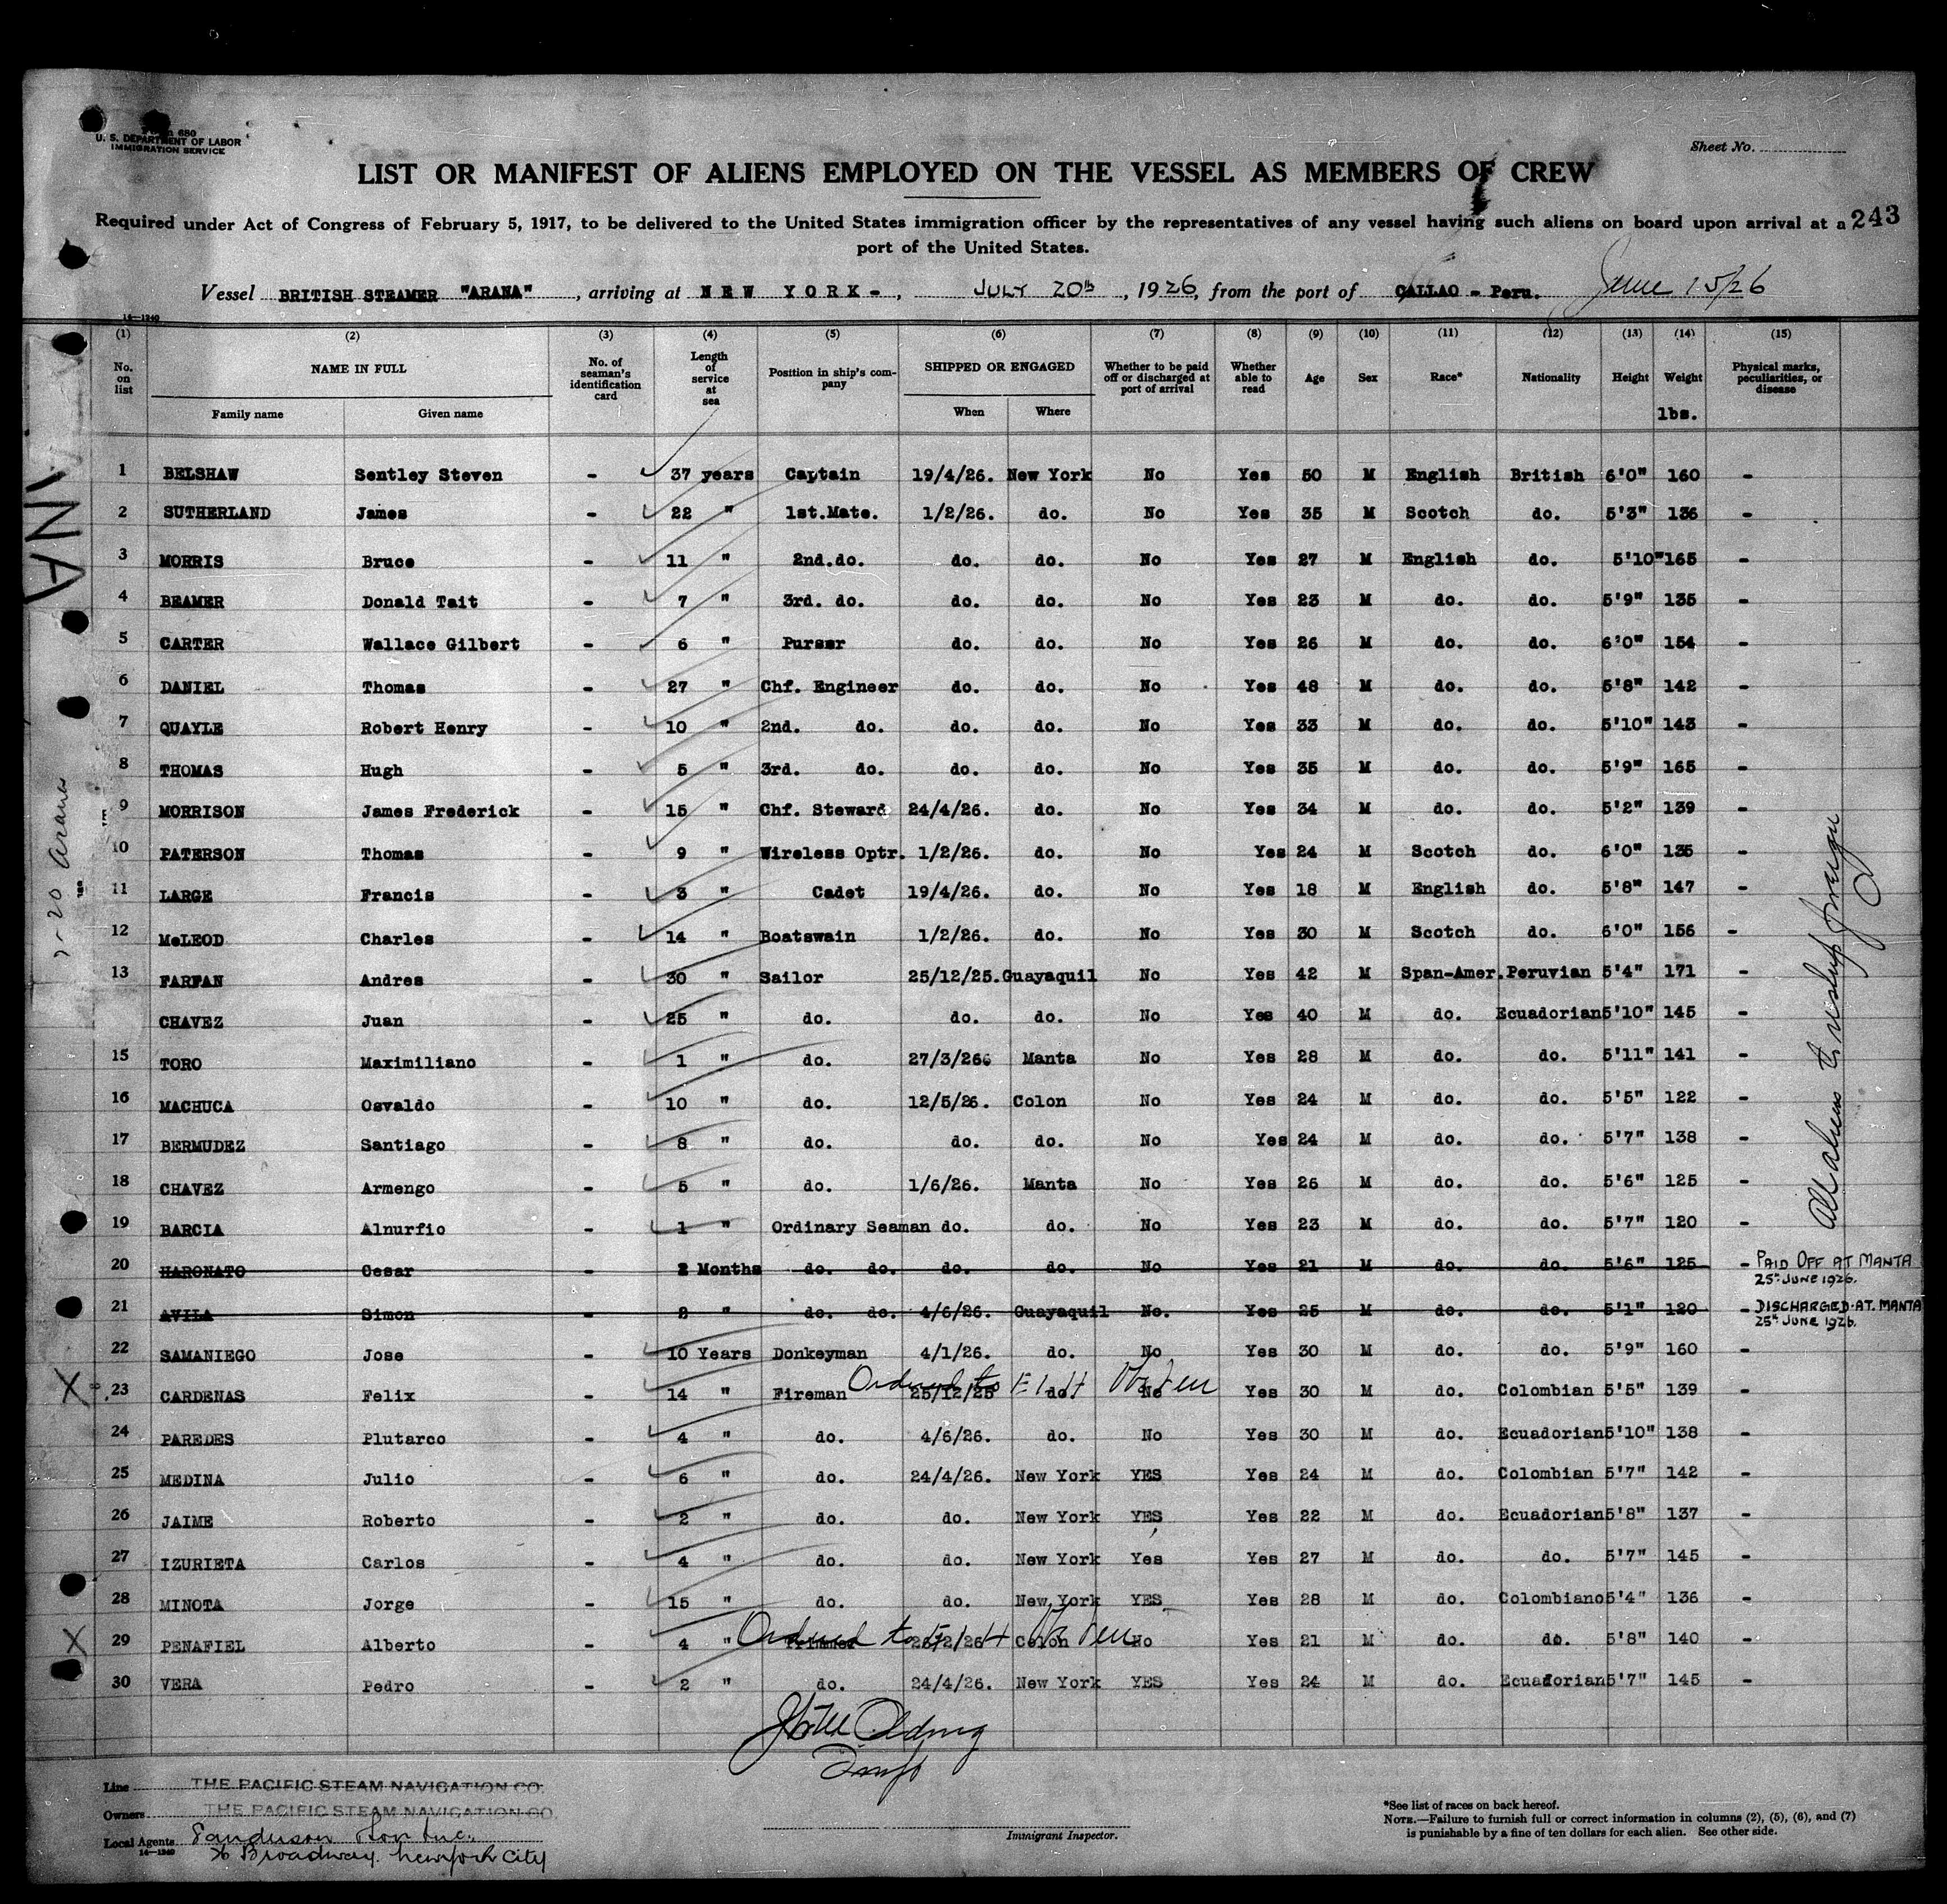 Form 680
U. S. DEPARTMENT OF LABOR
IMMIGRATION SERVICE
Sheet No.
LIST OR MANIFEST OF ALIENS EMPLOYED ON THE VESSEL AS MEMBERS OF CREW
Required under Act of Congress of February 5, 1917, to be delivered to the United States immigration officer by the representatives of any vessel having such aliens on board upon arrival at a 243
port of the United States.
Vessel BRITISH STEAMER "ARANA", arriving at NEW YORK-, JULY 20th, 1926, from the port of CALLAO - Peru. June 15/26
14—1240
(1) (2) (3) (4) (5) (6) (7) (8) (9) (10) (11) (12) (13) (14) (15)
No. on list NAME IN FULL Family name Given name No. of seaman's identification card Length of service at sea Position in ship's company SHIPPED OR ENGAGED When Where Whether to be paid off or discharged at port of arrival Whether able to read Age Sex Race* Nationality Height Weight lbs. Physical marks, peculiarities, or disease
1 BELSHAW Sentley Steven - 37 years Captain 19/4/26. New York No Yes 50 M English British 6'0" 160 -
2 SUTHERLAND James - 22 " 1st.Mate. 1/2/26. do. No Yes 35 M Scotch do. 5'3" 136 -
3 MORRIS Bruce - 11 " 2nd.do. do. do. No Yes 27 M English do. 5'10" 165 -
4 BEAMER Donald Tait - 7 " 3rd. do. do. do. No Yes 23 M do. do. 5'9" 135 -
5 CARTER Wallace Gilbert - 6 " Purser do. do. No Yes 26 M do. do. 6'0" 154 -
6 DANIEL Thomas - 27 " Chf. Engineer do. do. No Yes 48 M do. do. 5'8" 142 -
7 QUAYLE Robert Henry - 10 " 2nd. do. do. do. No Yes 33 M do. do. 5'10" 143 -
8 THOMAS Hugh - 5 " 3rd. do. do. do. No Yes 35 M do. do. 5'9" 165 -
9 MORRISON James Frederick - 15 " Chf. Steward 24/4/26. do. No Yes 34 M do. do. 5'2" 139 -
10 PATERSON Thomas - 9 " Wireless Optr. 1/2/26. do. No Yes 24 M Scotch do. 6'0" 135 -
11 LARGE Francis - 3 " Cadet 19/4/26. do. No Yes 18 M English do. 5'8" 147 -
12 McLEOD Charles - 14 " Boatswain 1/2/26. do. No Yes 30 M Scotch do. 6'0" 156 -
13 FARFAN Andres - 30 " Sailor 25/12/25. Guayaquil No Yes 42 M Span-Amer. Peruvian 5'4" 171 -
CHAVEZ Juan - 25 " do. do. do. No Yes 40 M do. Ecuadorian 5'10" 145 -
15 TORO Maximiliano - 1 " do. 27/3/266 Manta No Yes 28 M do. do. 5'11" 141 -
16 MACHUCA Osvaldo - 10 " do. 12/5/26. Colon No Yes 24 M do. do. 5'5" 122 -
17 BERMUDEZ Santiago - 8 " do. do. do. No Yes 24 M do. do. 5'7" 138 -
18 CHAVEZ Armengo - 5 " do. 1/6/26. Manta No Yes 26 M do. do. 5'6" 125 -
19 BARCIA Alnurfio - 1 " Ordinary Seaman do. do. No Yes 23 M do. do. 5'7" 120 -
20 HARONATO Cesar 2 Months do. do. do. do. No Yes 21 M do. do. 5'6" 125 - PAID OFF AT MANTA 25th JUNE 1926.
21 AVILA Simon 8 " do. do. 4/6/26. Guayaquil No. Yes 25 M do. do. 5'1" 120 - DISCHARGED AT MANTA 25th JUNE 1926.
22 SAMANIEGO Jose - 10 Years Donkeyman 4/1/26. do. No Yes 30 M do. do. 5'9" 160 -
X 23 CARDENAS Felix - 14 " Fireman 25/12/25 do. No Yes 30 M do. Colombian 5'5" 139 -
Ordered to
24 PAREDES Plutarco - 4 " do. 4/6/26. do. No Yes 30 M do. Ecuadorian 5'10" 138 -
25 MEDINA Julio - 6 " do. 24/4/26. New York YES Yes 24 M do. Colombian 5'7" 142 -
26 JAIME Roberto - 2 " do. do. New York YES Yes 22 M do. Ecuadorian 5'8" 137 -
27 IZURIETA Carlos - 4 " do. do. New York Yes Yes 27 M do. do. 5'7" 145 -
28 MINOTA Jorge - 15 " do. do. New York YES Yes 28 M do. Colombiano 5'4" 136 -
X 29 PENAFIEL Alberto - 4 " Trimmer Colon No Yes 21 M do. do. 5'8" 140 -
Ordered to
30 VERA Pedro - 2 " do. 24/4/26. New York YES Yes 24 M do. Ecuadorian 5'7" 145 -
All aliens to reship foreign
7-20 Arana
Line THE PACIFIC STEAM NAVIGATION CO.
Owners THE PACIFIC STEAM NAVIGATION CO.
Local Agents Sanderson & Son Inc.
26 Broadway. New York City
14—1240
Immigrant Inspector.
*See list of races on back hereof.
NOTE.—Failure to furnish full or correct information in columns (2), (5), (6), and (7)
is punishable by a fine of ten dollars for each alien. See other side.